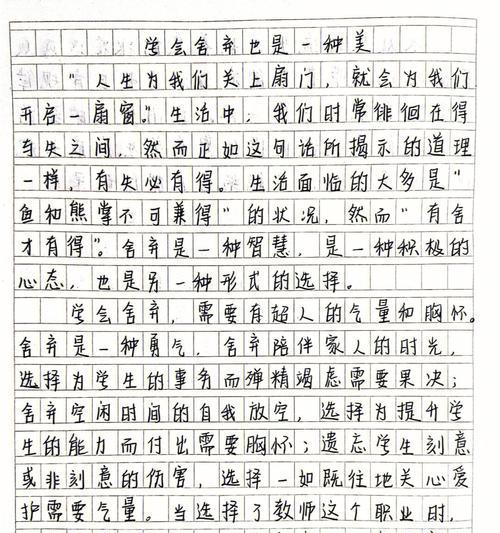 学会舍弃也是一种美
"人生为我们关上扇门，就会为我们
开启一扇窗。"生活中，我们时常徘徊在得
与失之间，然而正如这句话所揭示的道理
一样，有失必有得。生活面临的大多是"
鱼和熊掌不可兼得"的状况，然而"有舍
才有得"。舍弃是一种智慧，是一种积极的
心态，也是另一种形式的选择。
学会舍弃，需要有超人的气量和胸怀。
舍弃是一种勇气，舍弃陪伴家人的时光，
选择为学生的事务而殚精竭虑需要果决；
舍弃空闲时间的自我放空，选择为提升学
生的能力而付出需要胸怀；遗忘学生刻意
或非刻意的伤害，选择一如既往地关心爱
护需要气量。当选择了教师这个职业时，